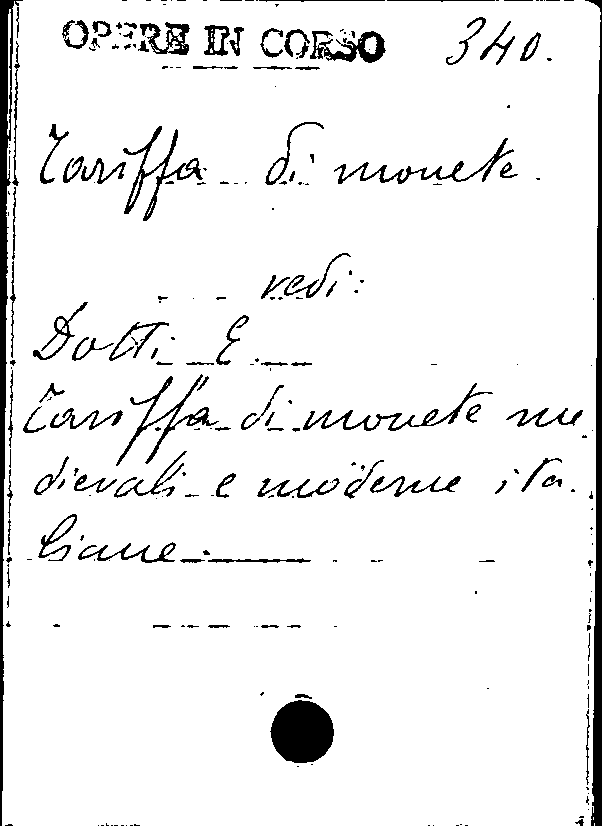 OPERE IN CORSO 340.
Tariffa di monete
vedi:
Dotti E.
Tariffa di monete me
dievali e moderne ita.
liane.